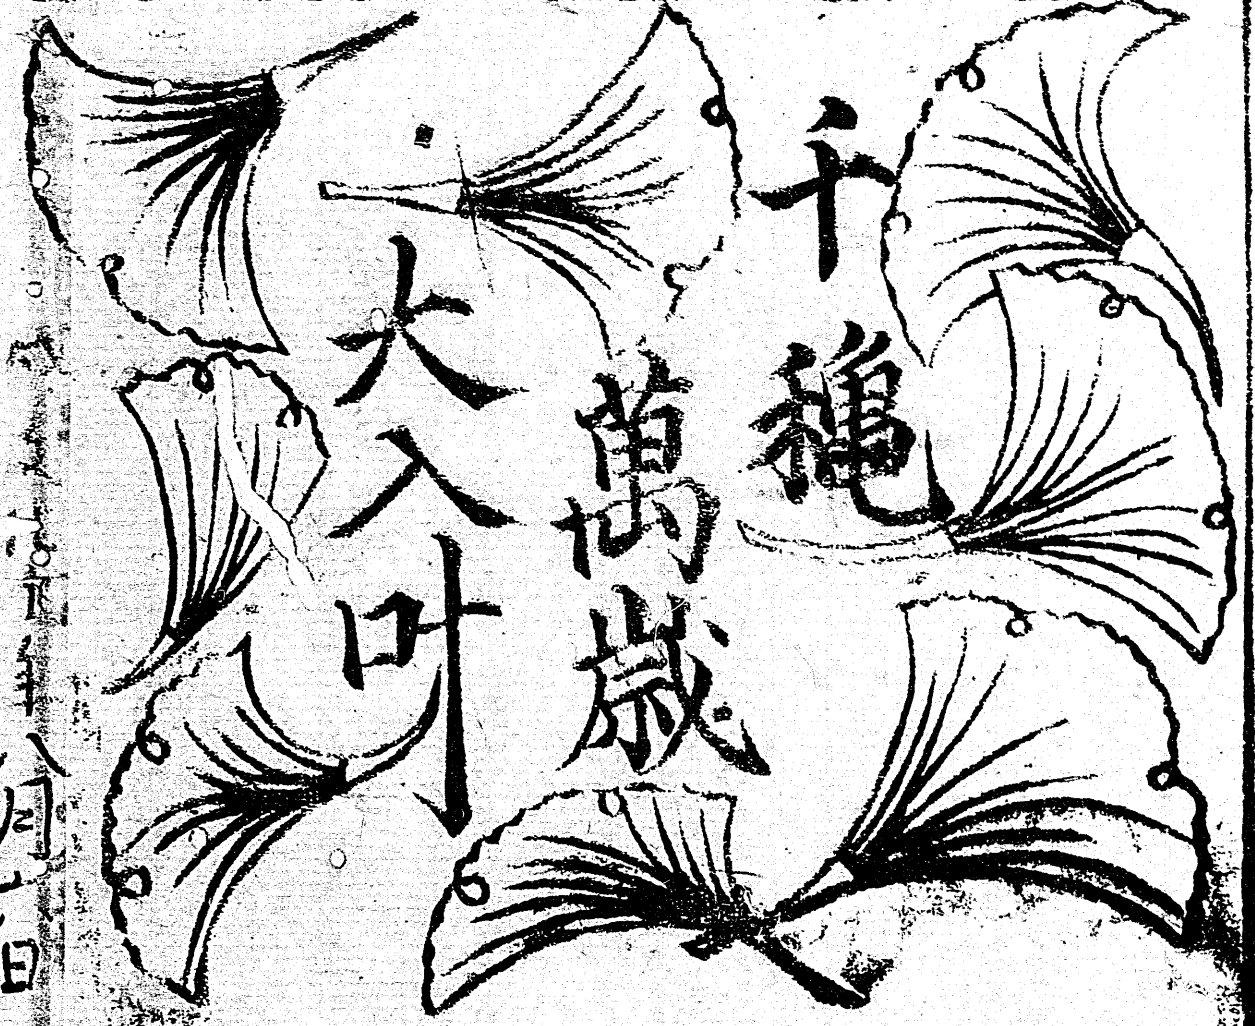 千穐
萬歳
大入叶